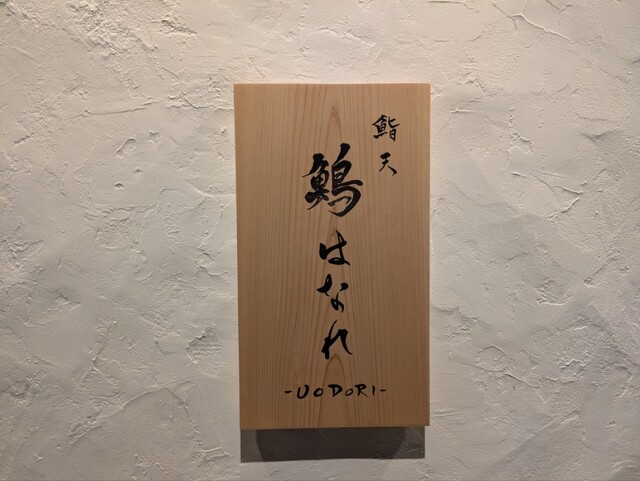 鮨天
鷠はなれ
-UODORI-